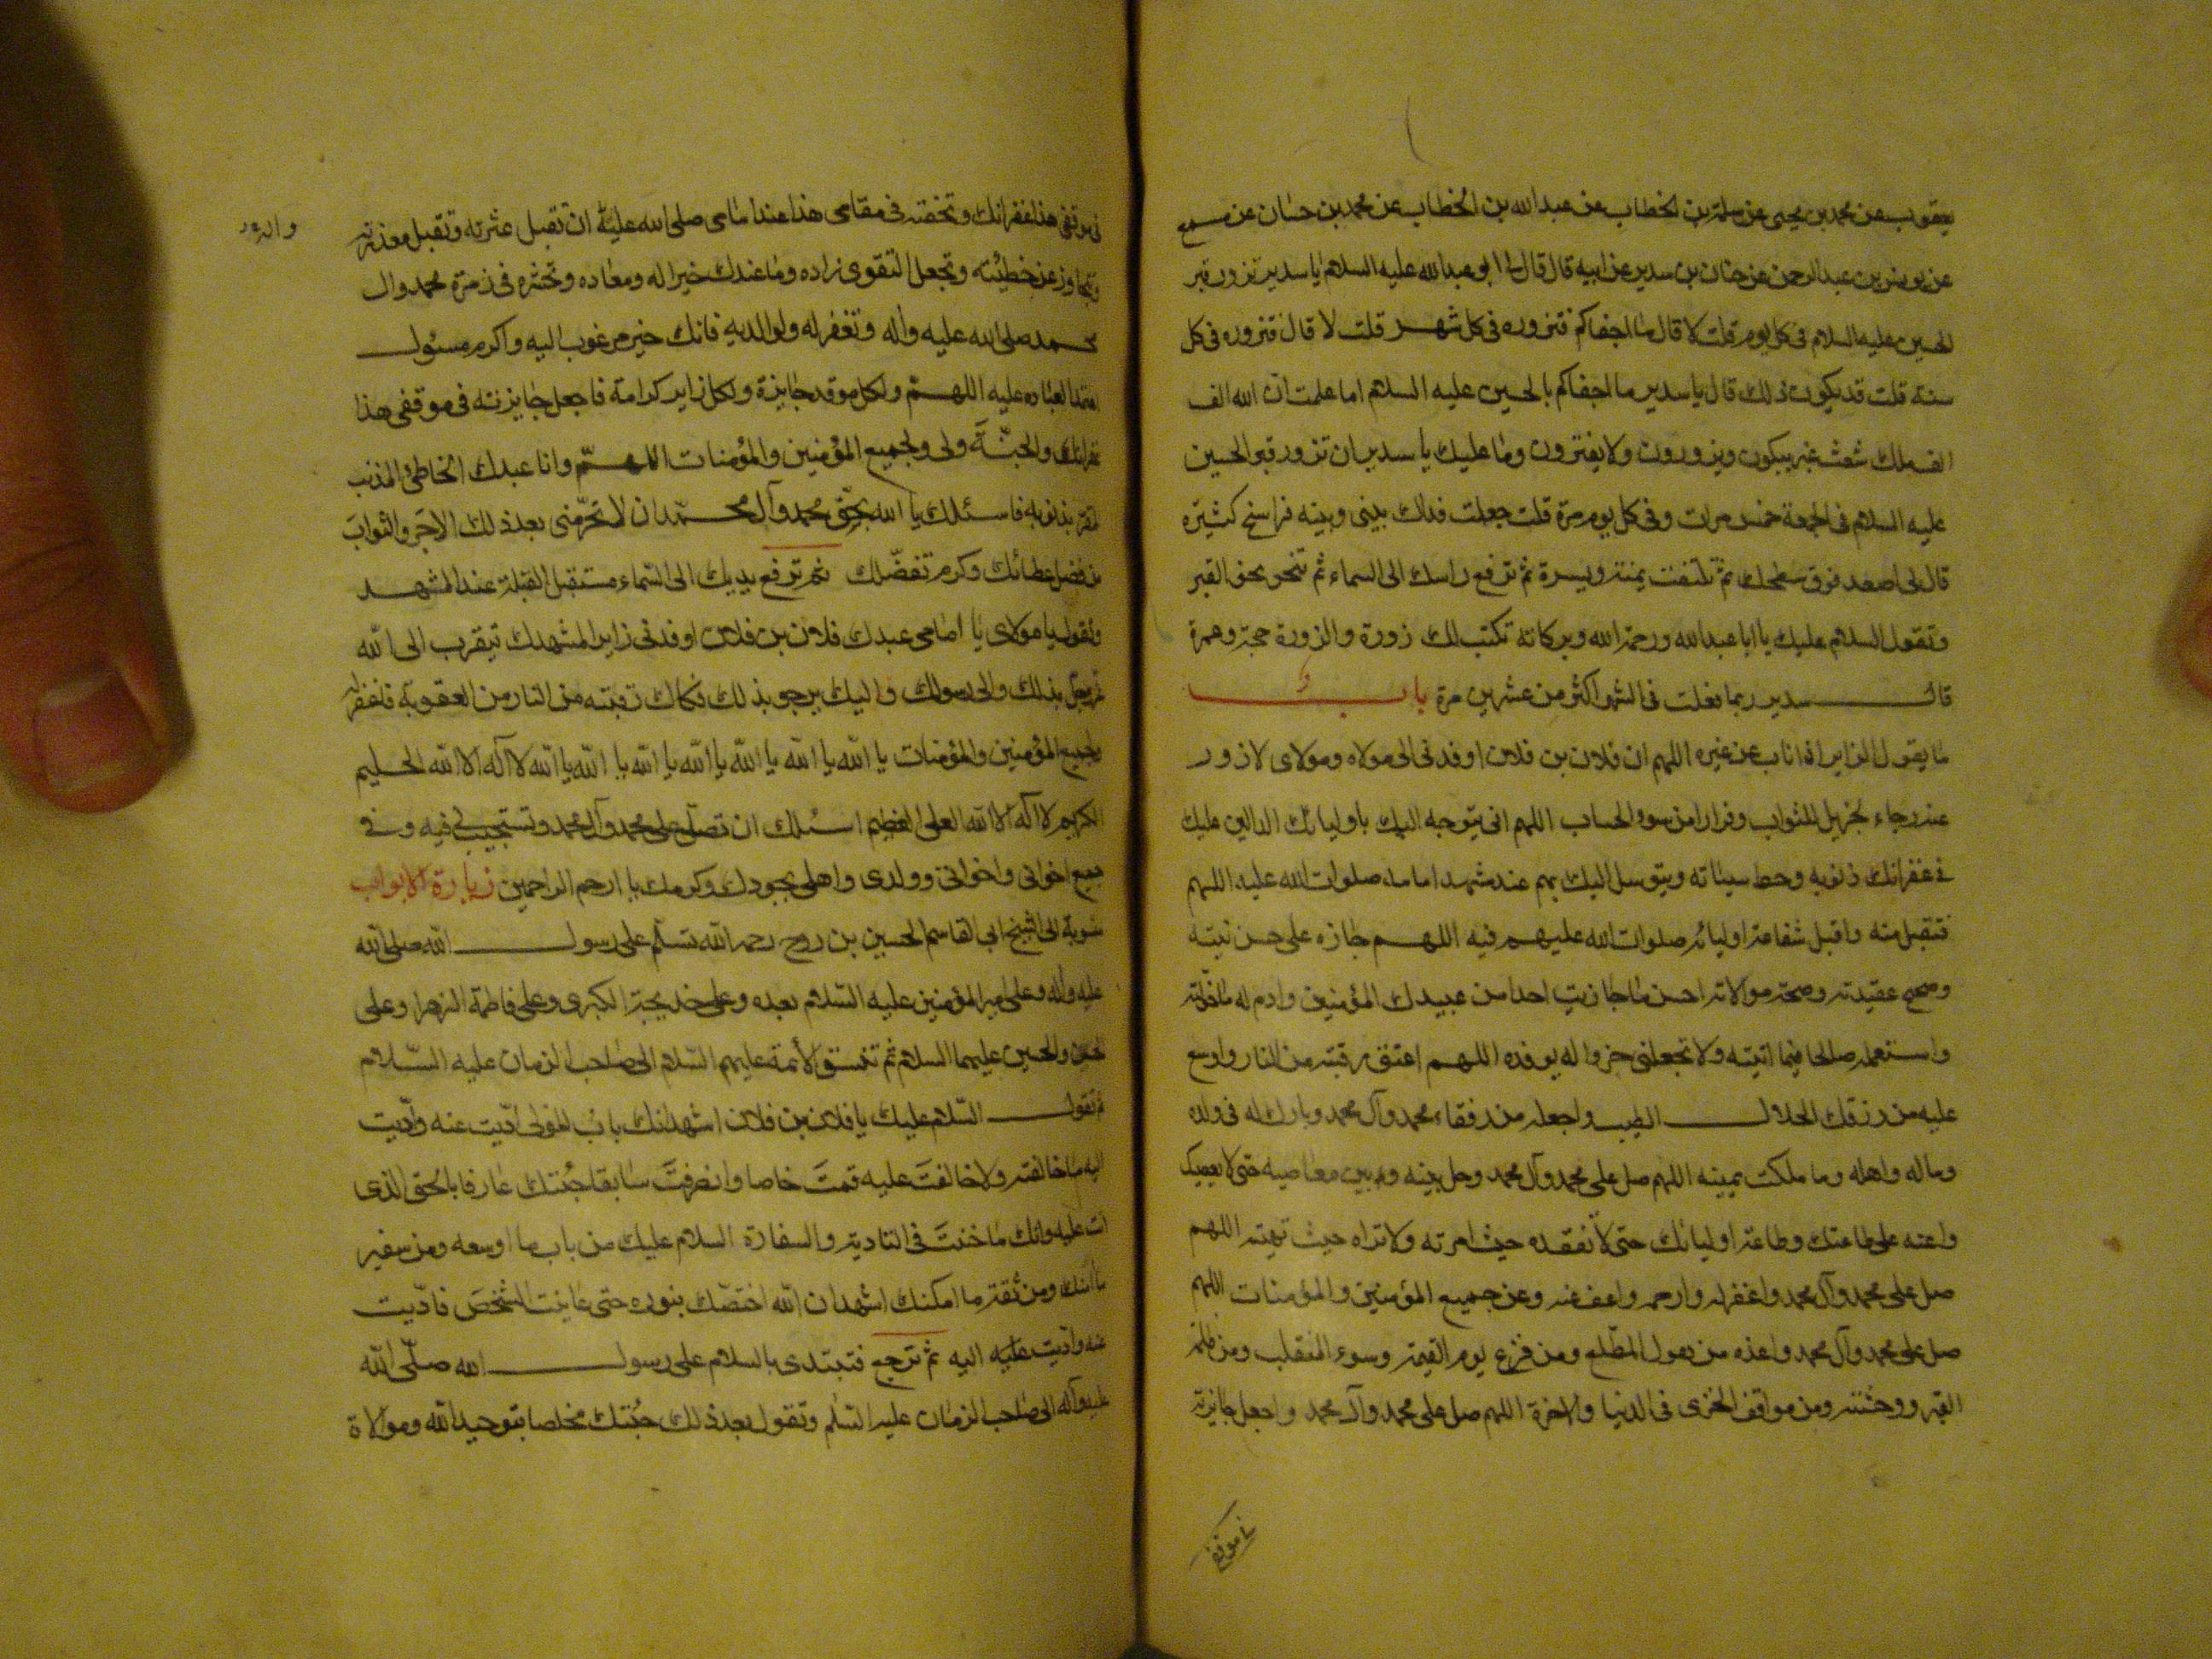 يعقوب عن محمد بن يحيى عن سلمة بن الخطاب عن عبد الله بن الخطاب عن محمد بن حسان عن مسمع
عن يونس بن عبد الرحمن عن حنان بن سدير عن ابيه قال قال لى ابو عبد الله عليه السلام يا سدير تزور قبر
الحسين عليه السلام فى كل يوم قلت لا قال ما اجفاكم فتزوره فى كل شهر قلت لا قال فتزوره فى كل
سنة قلت قد يكون ذلك قال يا سدير ما اجفاكم بالحسين عليه السلام اما علمت ان الله الف
الف ملك شعث غبر يبكون ويزورون ولا يفترون وما عليك يا سدير ان تزور قبر الحسين
عليه السلام فى الجمعة خمس مرات وفى كل يوم مرة قلت جعلت فداك بينى وبينه فراسخ كثيرة
قال لى اصعد فوق سطحك ثم تلتفت يمنة ويسرة ثم ترفع راسك الى السماء ثم تنحو نحو القبر
وتقول السلام عليك يا ابا عبد الله ورحمة الله وبركاته تكتب لك زورة والزورة حجة وعمرة
قال سدير ربما فعلت فى الشهر اكثر من عشرين مرة باب
ما يقول الزاير اذا ناب عن غيره اللهم ان فلان بن فلان اوفدنى الى مولاه ومولاى لازور
عنه رجاء لجزيل الثواب وفرارا من سوء الحساب اللهم انه يتوجه اليك باوليائك الدالين عليك
فى غفرانك ذنوبه وحط سيئاته ويتوسل اليك بهم عند مشهد امامه صلوات الله عليه اللهم
فتقبل منه واقبل شفاعة اوليائه صلوات الله عليهم فيه اللهم جازه على حسن نيته
وصحيح عقيدته وصحة موالاته احسن ما جازيت احدا من عبيدك المؤمنين وادم له ما خولته
واستعمله صالحا فيما اتيته ولا تجعلنى اخر وافد له يوفده اللهم اعتق رقبته من النار واوسع
عليه من رزقك الحلال الطيب واجعله من رفقاء محمد وآل محمد وبارك له فى ولده
وماله واهله وما ملكت يمينه اللهم صل على محمد وآل محمد وحل بينه وبين معاصيه حتى لا يعصيك
واعنه على طاعتك وطاعة اوليائك حتى لا تفقده حيث امرته ولا تراه حيث نهيته اللهم
صل على محمد وآل محمد واغفر له وارحمه واعف عنه وعن جميع المؤمنين والمؤمنات اللهم
صل على محمد وآل محمد واعذه من هول المطلع ومن فزع يوم القيمة وسوء المنقلب ومن ظلمة
القبر ووحشته ومن مواقف الخزى فى الدنيا والاخرة اللهم صل على محمد وآل محمد واجعل جائزته
فى موقفى
فى موقفى هذا غفرانك وتحفته فى مقامى هذا عند امامى صلى الله عليه ان تقبل عثرته وتقبل معذرته
وتتجاوز عن خطيئته وتجعل التقوى زاده وما عندك خيرا له ومعاده وتحشره فى زمرة محمد وال
محمد صلى الله عليه واله وتغفر له ولوالديه فانك خير مرغوب اليه واكرم مسئول
اعتمد العباد عليه اللهم ولكل موفد جايزة ولكل زاير كرامة فاجعل جايزته فى موقفى هذا
غفرانك والجنّة ولى ولجميع المؤمنين والمؤمنات اللهمّ وانا عبدك الخاطئ المذنب
المقر بذنوبه فاسئلك يا الله بحق محمد وآل محمد ان لا تحرمنى بعد ذلك الاجر والثواب
من فضل عطائك وكرم تفضّلك ثم ترفع يديك الى السماء مستقبل القبلة عند المشهد
وتقول يا مولاى يا امامى عبدك فلان بن فلان اوفدنى زايرا لمشهدك يتقرب الى الله
عز وجل بذلك والى رسولك واليك يرجو بذلك فكاك رقبته من النار من العقوبة فاغفر له
ولجميع المؤمنين والمؤمنات يا الله يا الله يا الله يا الله يا الله يا الله يا الله لا آله الا الله الحليم
الكريم لا آله الا الله العلى العظيم اسئلك ان تصلى على محمد وآل محمد وتستجيب لى فيه وفى
جميع اخوانى واخواتى وولدى واهلى بجودك وكرمك يا ارحم الراحمين زيارة الابواب
منسوبة الى الشيخ ابى القاسم الحسين بن روح رحمه الله تسلم على رسول الله صلى الله
عليه وآله وعلى امير المؤمنين عليه السلام بعده وعلى خديجة الكبرى وعلى فاطمة الزهرا وعلى
الحسن والحسين عليهما السلام ثم تنسق الأئمة عليهم السلام الى صاحب الزمان عليه السلام
ثم تقول السلام عليك يا فلان بن فلان اشهد انك باب المولى اديت عنه واديت
اليه ما خالفته ولا خالفت عليه قمت خاصا وانصرفت سابقا جئتك عارفا بالحق الذى
انت عليه وانك ما خنت فى التادية والسفارة السلام عليك من باب ما اوسعه ومن سفير
ما آمنك ومن ثقة ما امكنك اشهد ان الله اختصك بنوره حتى عاينت الشخص فاديت
عنه واديت عليه اليه ثم ترجع فتبتدى بالسلام على رسول الله صلى الله
عليه وآله الى صاحب الزمان عليه السلم وتقول بعد ذلك جئتك مخلصا بتوحيد الله وموالاة